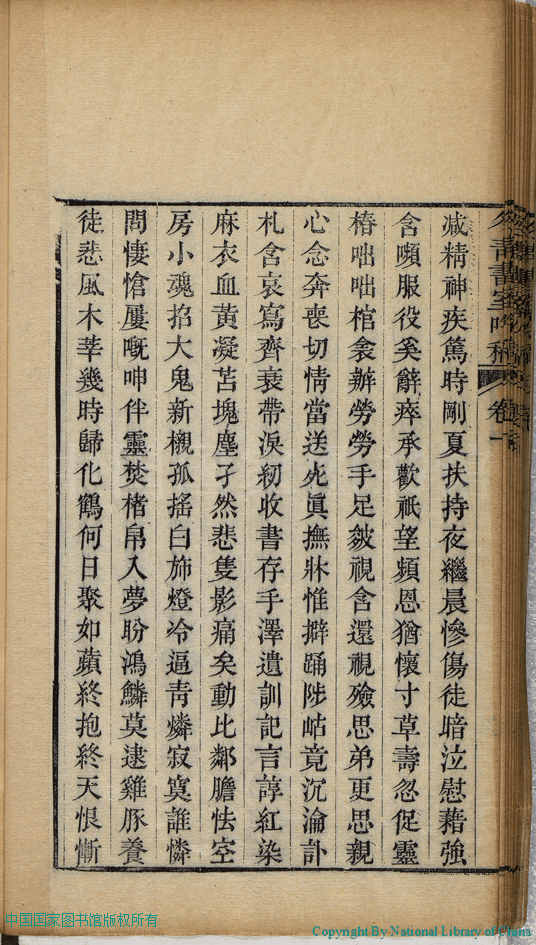 減精神疾篤時剛夏扶持夜繼晨慘傷徒暗泣慰藉強
含嚬服役奚辭瘁承歡祇望頻恩猶懷寸草壽忽促靈
椿咄咄棺衾辦勞勞手足皴視含還視殮思弟更思親
心念奔喪切情當送死眞撫牀惟擗踊陟岵竟沉淪訃
札含哀寫齊衰帶淚紉收書存手澤遺訓記言諄紅染
麻衣血黃凝苫塊塵孑然悲隻影痛矣動比鄰膽怯空
房小魂招大鬼新櫬孤搖白旆燈冷逼靑燐寂寞誰憐
問悽愴屢嘅呻伴靈焚楮帛入夢盼鴻鱗莫逮雞豚養
徒悲風木莘幾時歸化鶴何日聚如蘋終抱終天恨慚
靑書室吟稿
卷一
中国国家图书馆版权所有
Copyright By National Library of China